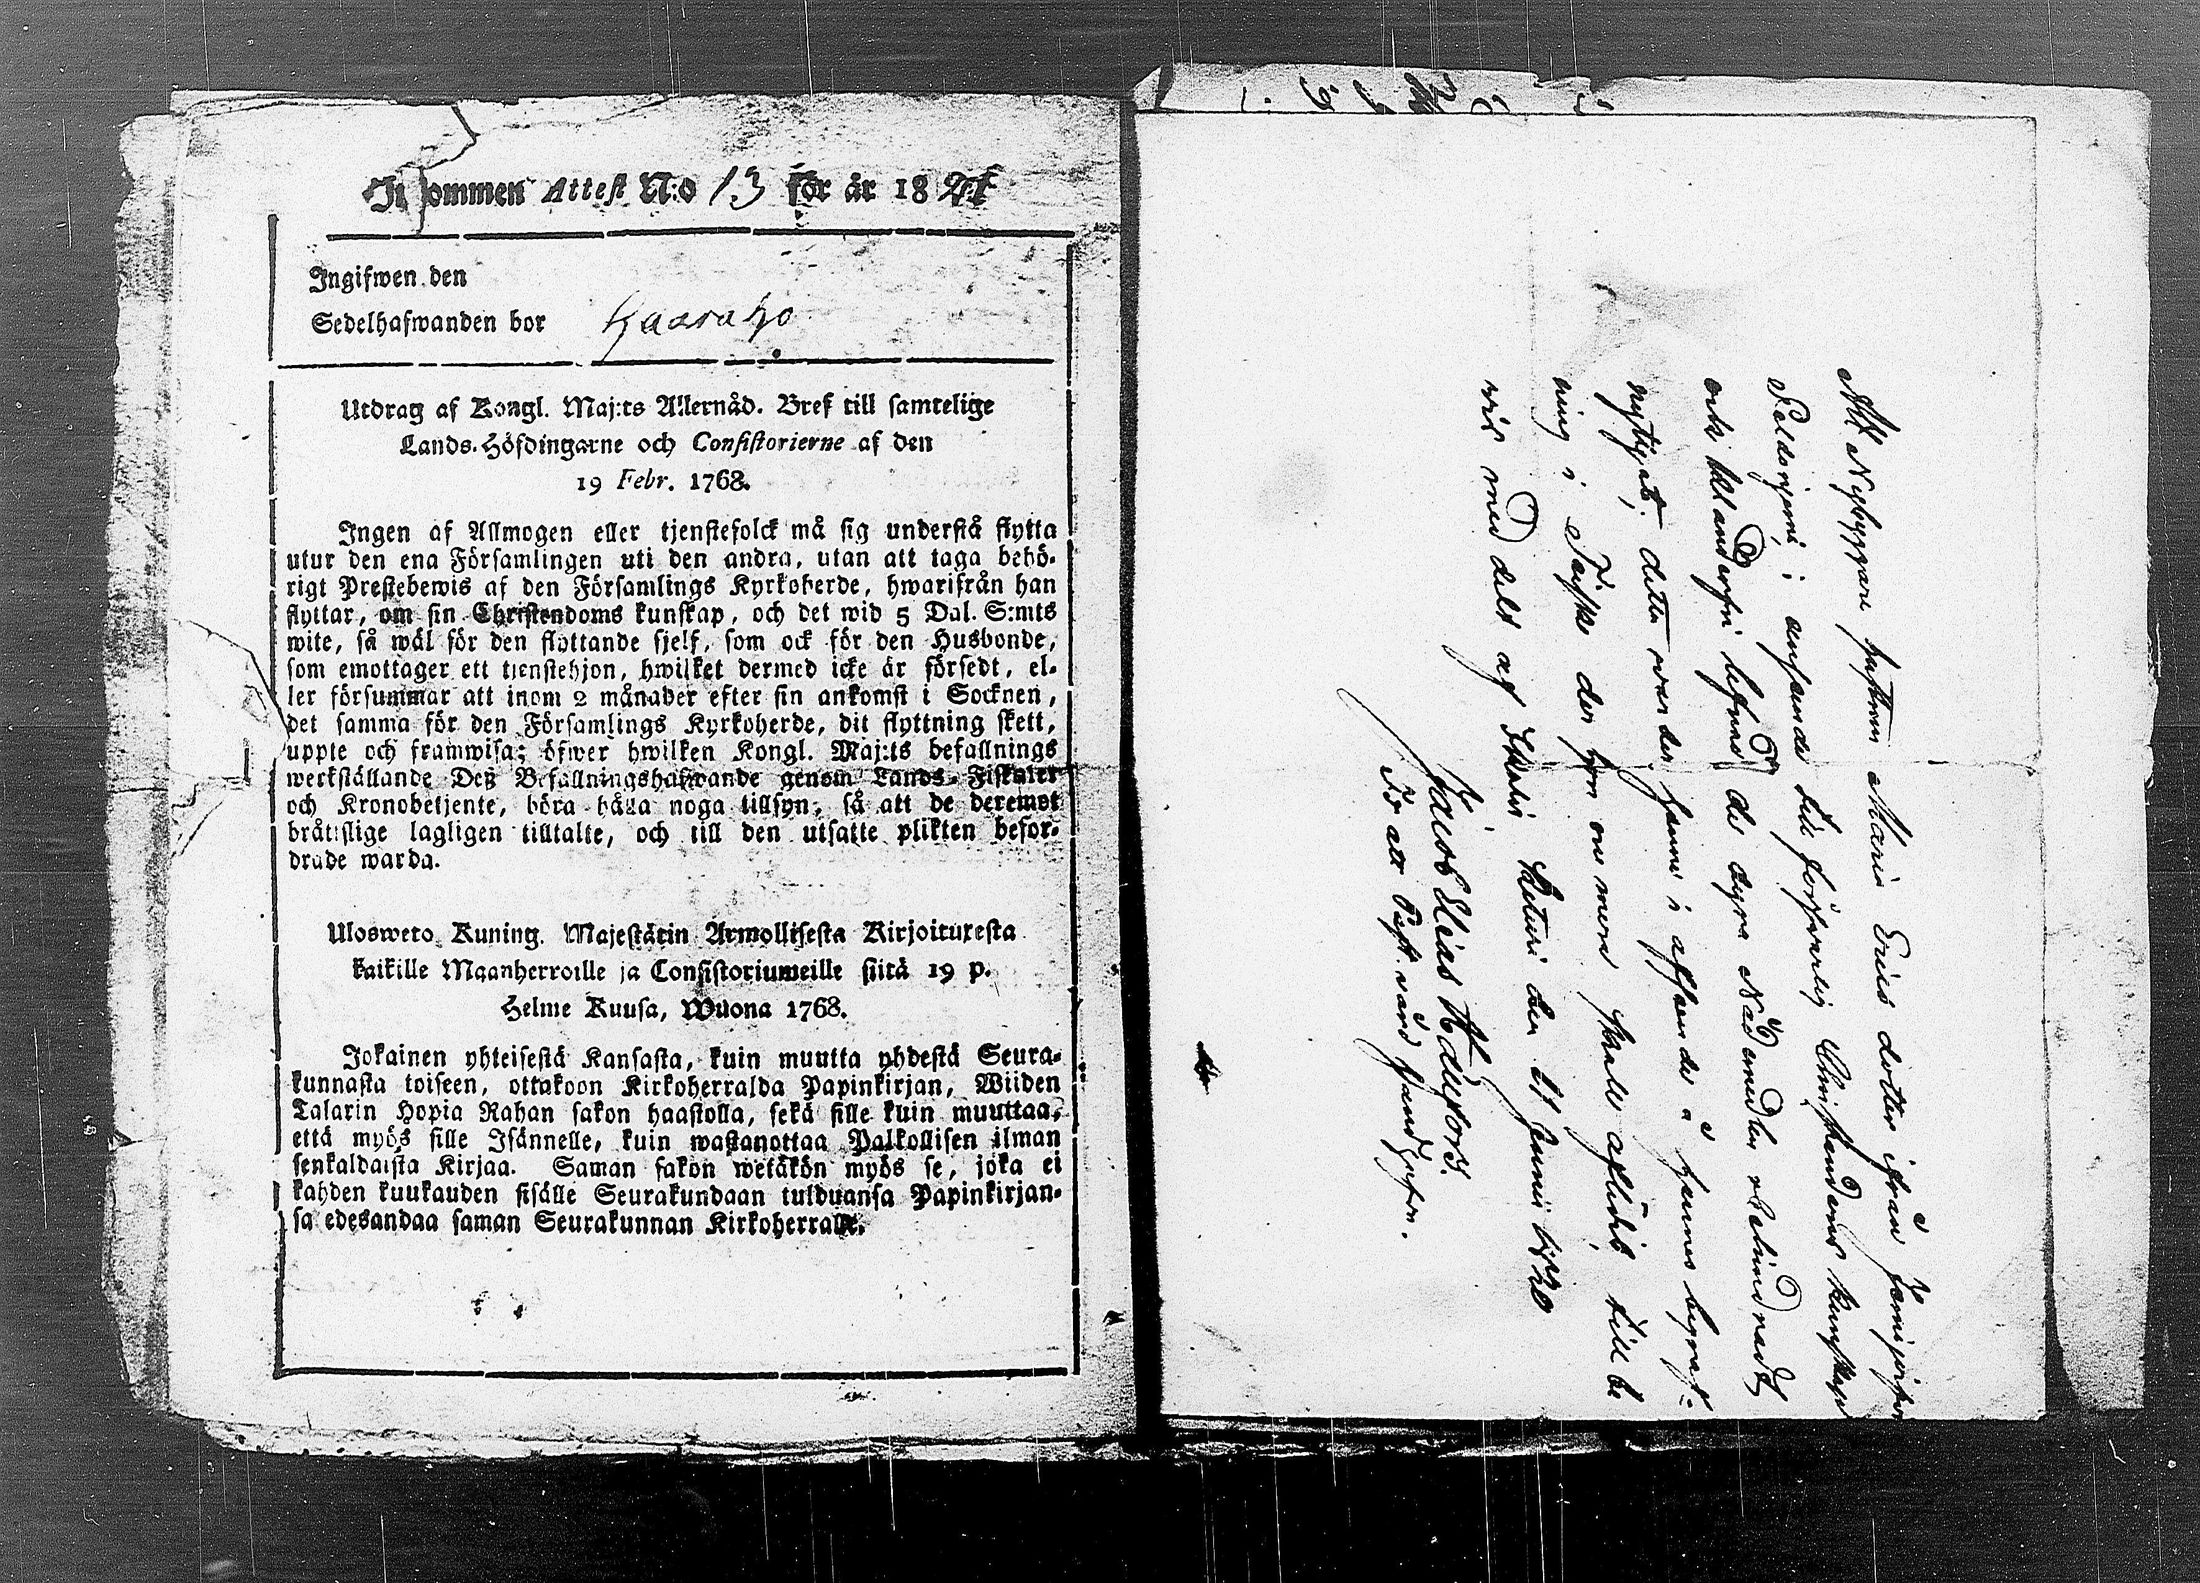 Inkommen Attest N:o 13 för år 1821
Ingifwen den
Sedelhafwanden bor Kaarako
Utdrag af Kongl. Maj:ts Allernåd. Bref till samtelige
Lands-Höfdingarne och Consistorierne af den
19 Febr. 1768.
Ingen af Allmogen eller tjenstefolck må sig understå flytta
utur den ena Församlingen uti den andra, utan att taga behö-
rigt Prestebewis af den Församlings Kyrkoherde, hwarifrån han
flyttar, om sin Christendoms kunskap, och det wid 5 Dal. S:mts
wite, så wäl för den flyttande sjelf, som ock för den Husbonde,
som emottager ett tjenstehjon, hwilket dermed icke är försedt, el-
ler försummar att inom 2 månader efter sin ankomst i Socknen,
det samma för den Församlings Kyrkoherde, dit flyttning skett,
uppte och framwisa; öfwer hwilken Kongl. Maj:ts befallnings
werkställande Deß Befallningshafwande genom Lands-Fiskaler
och Kronobetjente, böra hålla noga tillsyn, så att de deremot
bråtslige lagligen tilltalte, och till den utsatte plikten befor-
drade warda.
Ulosweto Kuning. Majestätin Armollisesta Kirjoituxesta
kaikille Maanherroille ja Consistoriumeille siitä 19 p.
Helme Kuusa, Wuona 1768.
Jokainen yhteisestä Kansasta, kuin muutta yhdestä Seura-
kunnasta toiseen, ottakoon Kirkoherralda Papinkirjan, Wiiden
Talarin Hopia Rahan sakon haastolla, sekä sille kuin muuttaa,
että myös sille Isännelle, kuin wastanottaa Palkollisen ilman
senkaldaista Kirjaa. Saman sakon wetäkön myös se, joka ei
kahden kuukauden sisälle Seurakundaan tulduansa Papinkirjan-
sa edesandaa saman Seurakunnan Kirkoherralle.
Att Nybyggare hustrun Maria Erics dotter ifrån
i anseende till försvarlig Christendoms kunskap
och klanderfri lefnad de dyra Nådemedlen
nyttjat; detta warder henne i afseende å hennes begraf-
ning i der hon numera skall aflidit, till be
vis meddelt af den 21 Junii 1820
Jacob Elias